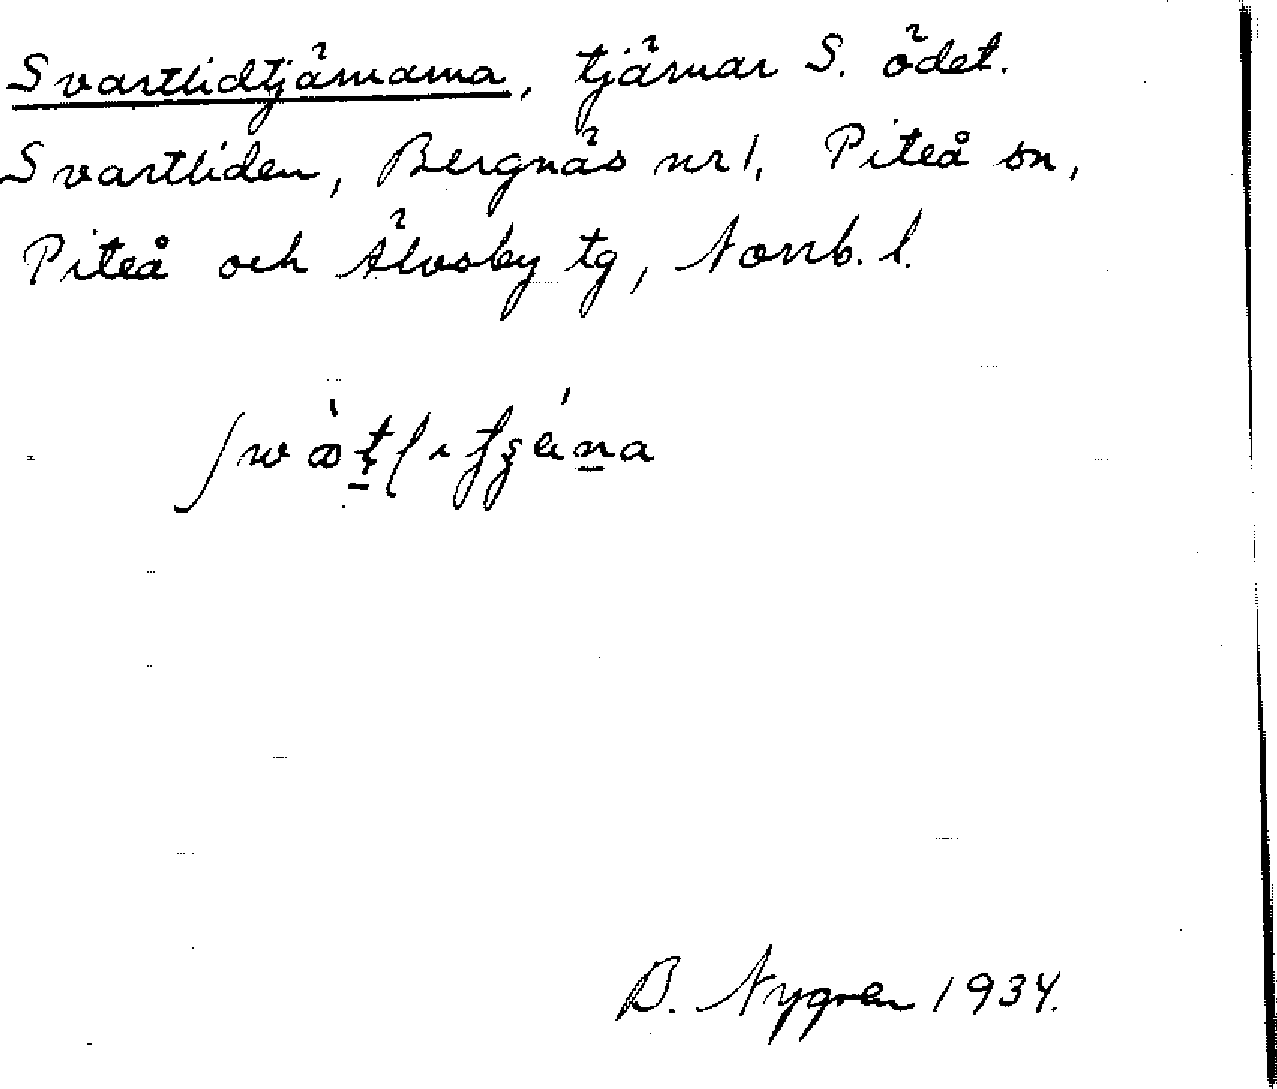 Svartlidtjärnarna, tjärnar S. ödet.
Svartliden, Bergnäs nr 1, Piteå sn,
Piteå och Älvsby tg, Norrb. l.
B. Nygren 1934.